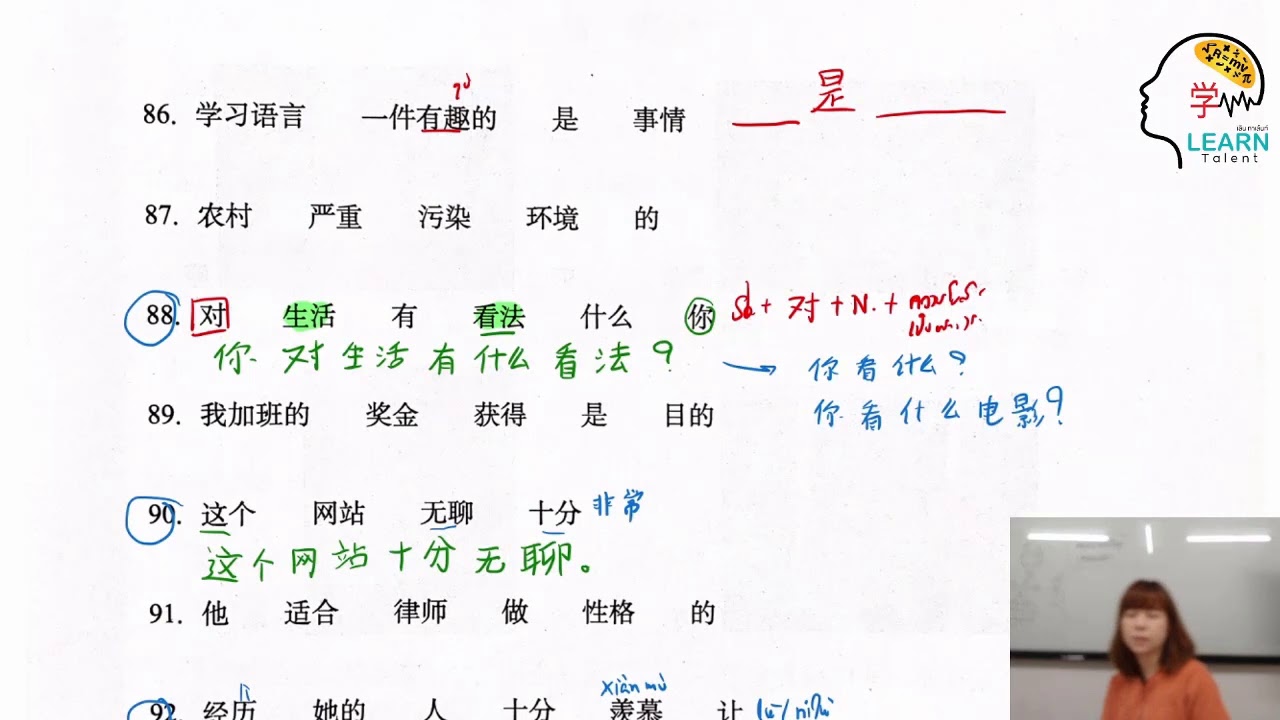 学
เลิน ทาเล้นท์
LEARN
Talent
86. 学习语言 一件有趣的 是 事情 ___ 是 ___
87. 农村 严重 污染 环境 的
88. 对 生活 有 看法 什么 你 + 对 + N. +
你 对 生活 有 什么 看法？
你看什么？
89. 我加班的 奖金 获得 是 目的
你看什么电影？
90. 这个 网站 无聊 十分 非常
这个网站十分无聊。
91. 他 适合 律师 做 性格 的
xiàn mù
92. 经历 她的 人 十分 羡慕 让